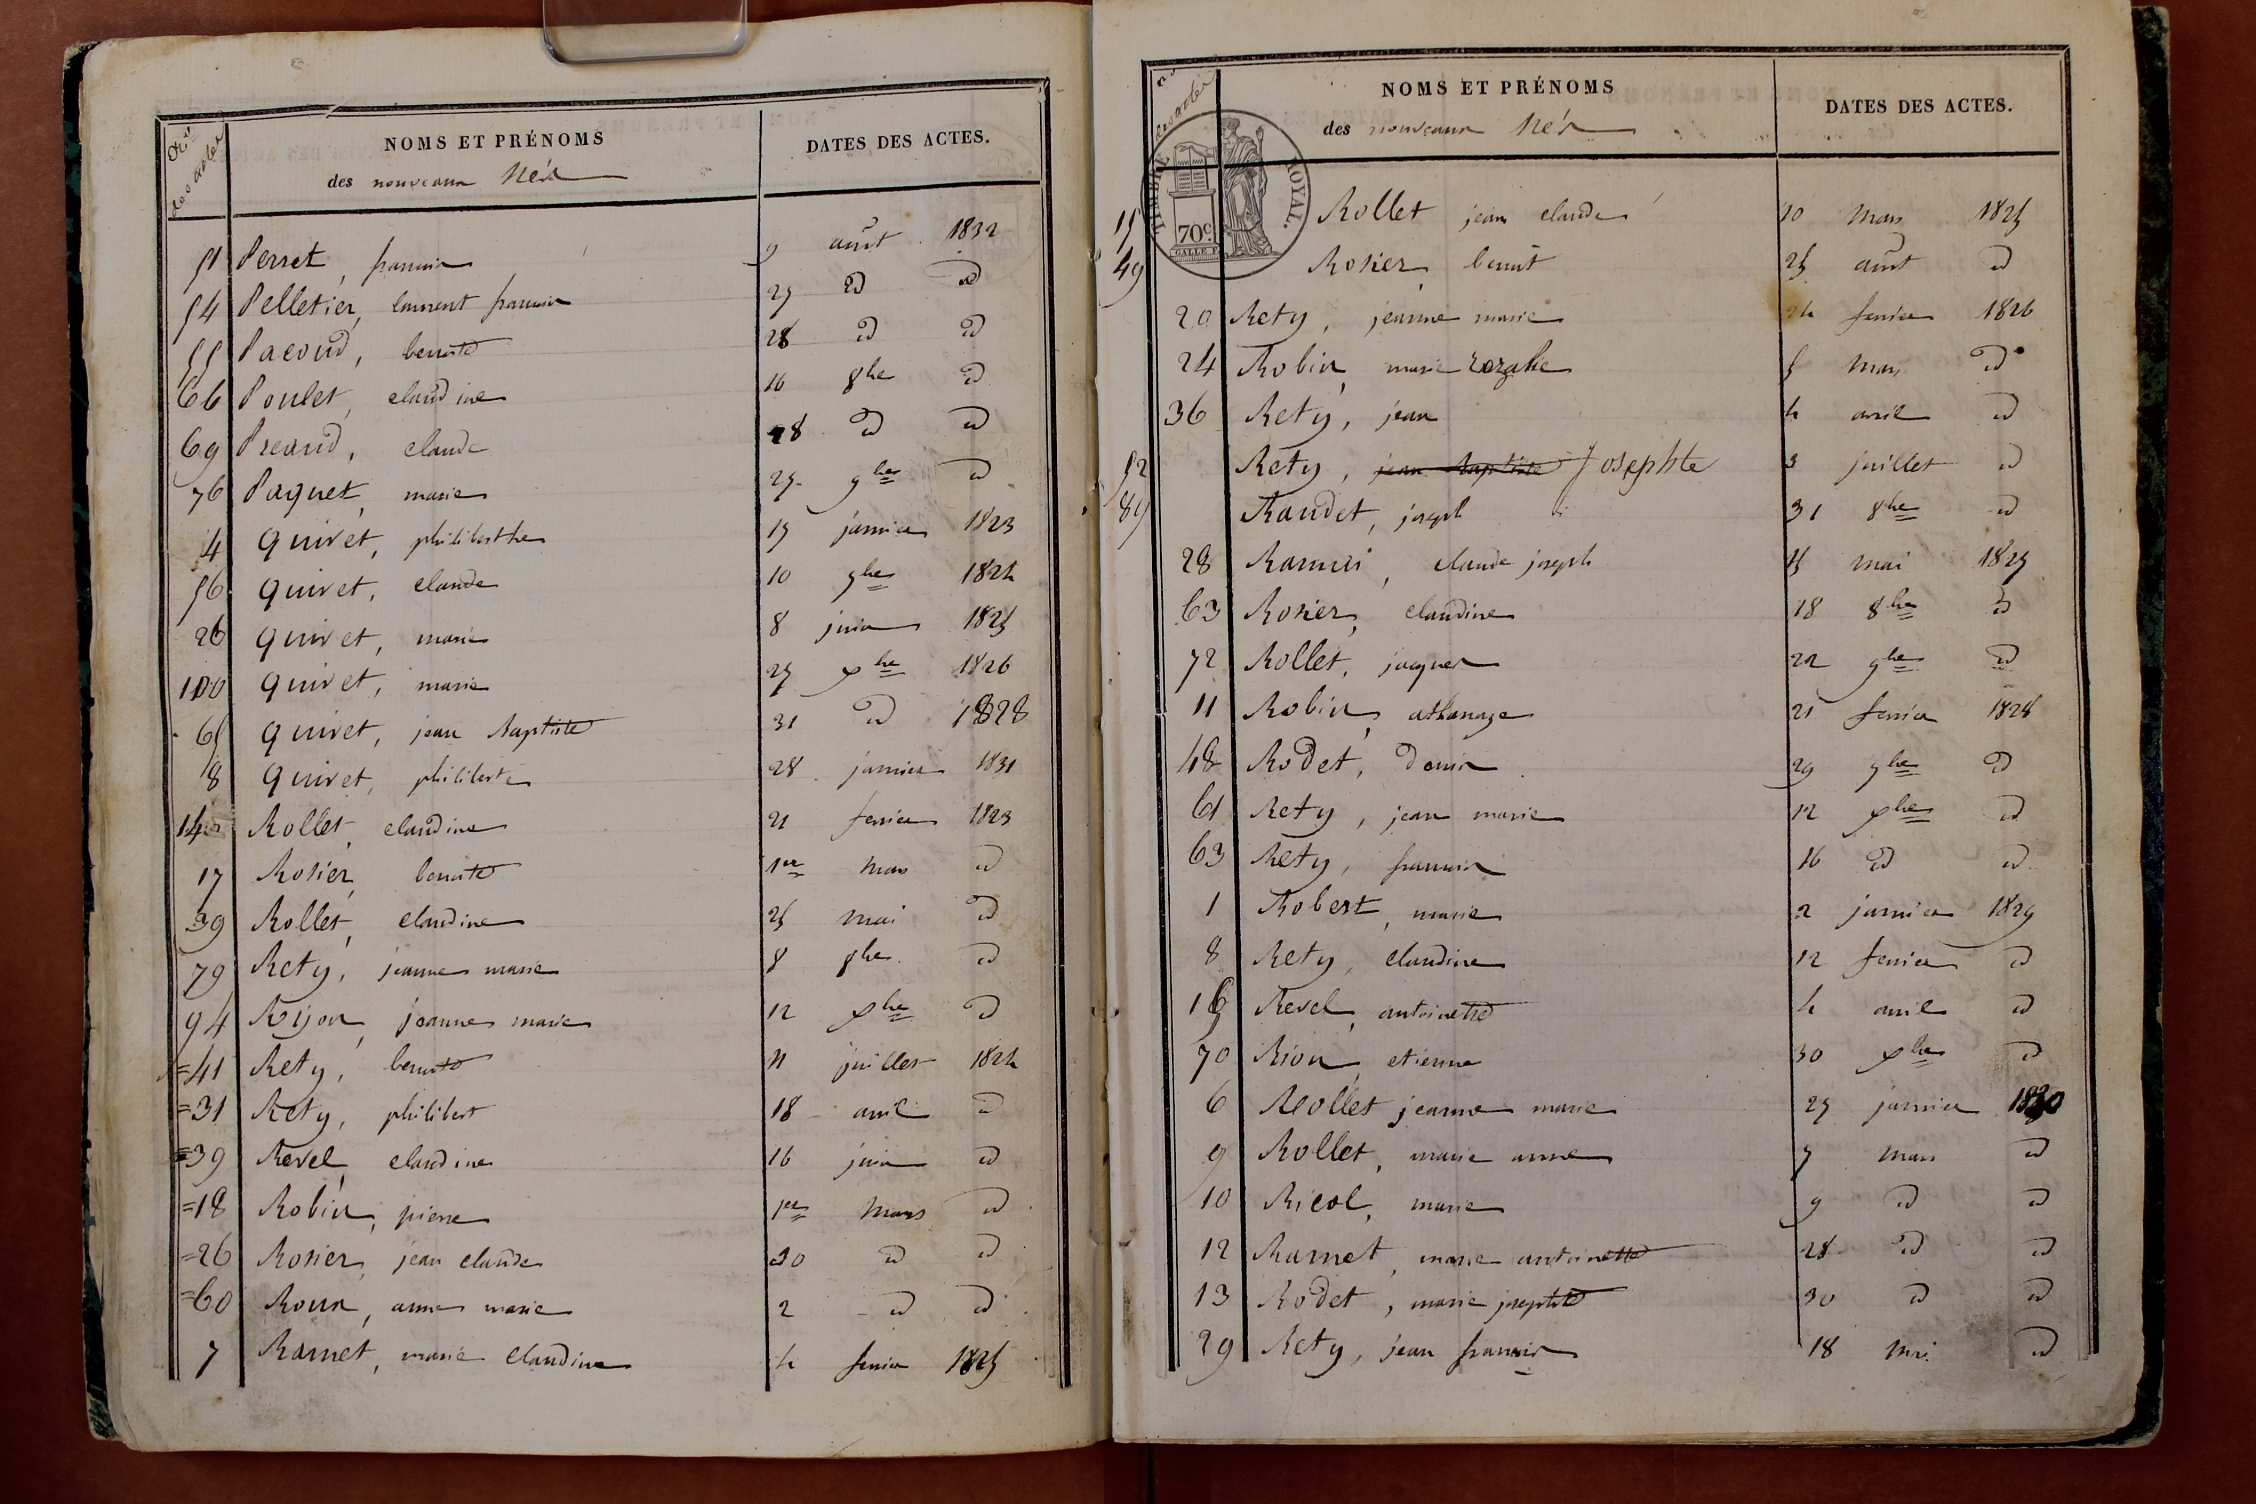 Nos des actes
NOMS ET PRÉNOMS
des nouveaux Nés
DATES DES ACTES.
51 Perret, francois 9 aout 1832
54 Pelletier, laurent francois 27 d d
55 Pacoud, benoite 28 d d
66 Poulet, claudine 16 8bre d
69 Preaud, claude 28 d d
76 Paquet, marie 27 9bre d
4 quivet, philiberthe 17 janvier 1823
56 quivet, claude 10 9bre 1824
26 quivet, marie 8 juin 1825
100 quivet, marie 27 xbre 1826
65 quivet, jean Baptiste 31 d 1828
8 quivet, philiberte 28 janvier 1831
14 Rollet, claudine 21 fevrier 1823
17 Rosier, benoite 1er mars d
39 Rollet, claudine 25 mai d
79 Rety, jeanne marie 8 8bre d
94 Rijon, jeanne marie 12 xbre d
=41 Rety, benoite 11 juillet 1824
=31 Rety, philibert 18 avril d
=39 Revel, claudine 16 juin d
=18 Robin, pierre 1er mars d
=26 Rosier, jean claude 30 d d
=60 Roux, anne marie 2 d d
7 Ramet, marie claudine 4 fevrier 1825
nos des actes
NOMS ET PRÉNOMS
des nouveaux Nés
DATES DES ACTES.
TIMBRE ROYAL.
70c
15 Rollet jean claude 10 mars 1825
49 Rosier, benoit 25 aout d
20 Rety, jeanne marie 24 fevrier 1826
24 Robin, marie rozalie 5 mars d
36 Rety, jean 4 avril d
52 Rety, jean Baptiste Josephte 3 juillet d
89 Raudet, joseph 31 8bre d
28 claude joseph 15 mai 1827
63 Rosier, claudine 18 8bre d
72 Rollet, jacques 22 9bre d
11 Robin, athanaze 21 fevrier 1828
48 Rodet, Denis 29 9bre d
61 Rety, jean marie 12 xbre d
63 Rety, francois 16 d d
1 Robert, marie 2 janvier 1829
8 Rety, claudine 12 fevrier d
16 Revel, antoinette 4 avril d
70 Rion, etienne 30 xbre d
6 Rollet jeanne marie 27 janvier 1830
9 Rollet, marie anne 7 mars d
10 Ricol, marie 9 d d
12 Ramet, marie antoinette 28 d d
13 Rodet, marie josephte 30 d d
29 Rety, jean francois 18 mai d